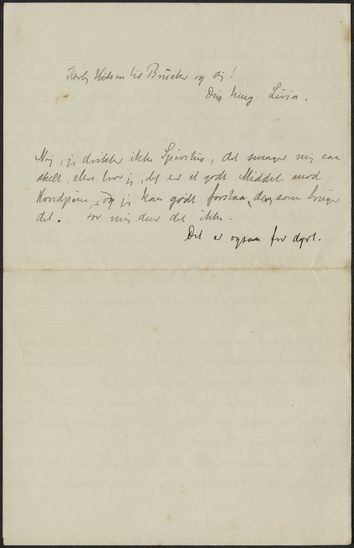 Kærlig Hilsen til Brücker og dig!
Din heng. Luisa.
Nej, jeg drikker ikke Spiritus, det smager mig saa
skidt, ellers tror jeg, det er et godt Middel mod
og jeg kan godt forstaa dem, som bruger
det. For mig duer det ikke.
Det er ogsaa for dyrt.